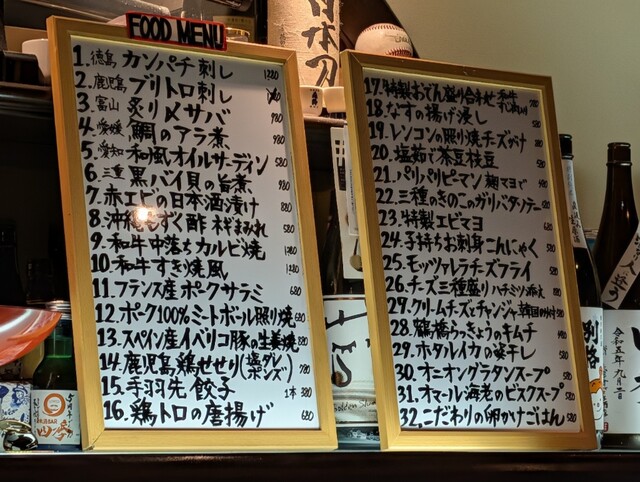 FOOD MENU
1. 徳島 カンパチ刺し 1380
2. 鹿児島 ブリトロ刺し
3. 富山 炙り〆サバ 980
4. 愛媛 鯛のアラ煮 980
5. 愛知 和風オイルサーディン 580
6. 三重 黒バイ貝の旨煮 980
7. 赤エビの日本酒漬け 780
8. 沖縄もずく酢 580
9. 和牛中落ちカルビ焼 1380
10. 和牛すき焼風 1280
11. フランス産ポークサラミ 680
12. ポーク100%ミートボール照り焼 680
13. スペイン産イベリコ豚の生姜焼 980
14. 鹿児島鶏せせり(塩ダレ ポンズ) 780
15. 手羽先餃子 1本 380
16. 鶏トロの唐揚げ 680
17. 特製おでん盛り合わせ 780
18. なすの揚げ浸し 580
19. レンコンの照り焼チーズがけ
20. 塩茹で茶豆枝豆 520
21. パリパリピーマン 麹マヨで
22. 三種のきのこのガリバタソテー
23. 特製エビマヨ 620
24. 子持ちお刺身こんにゃく 520
25. モッツァレラチーズフライ
26. チーズ三種盛り ハチミツ添え
27. クリームチーズとチャンジャ 韓国のり付
28. 鶴橋らっきょうのキムチ
29. ホタルイカの姿干し 580
30. オニオングラタンスープ
31. オマール海老のビスクスープ 580
32. こだわりの卵かけごはん 520
日本刀
令和五年九月